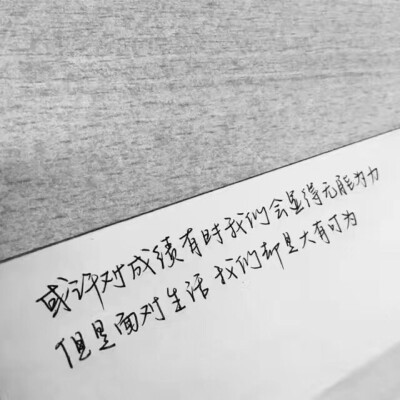 或许对成绩有时我们会显得无能为力
但是面对生活 我们却是大有可为